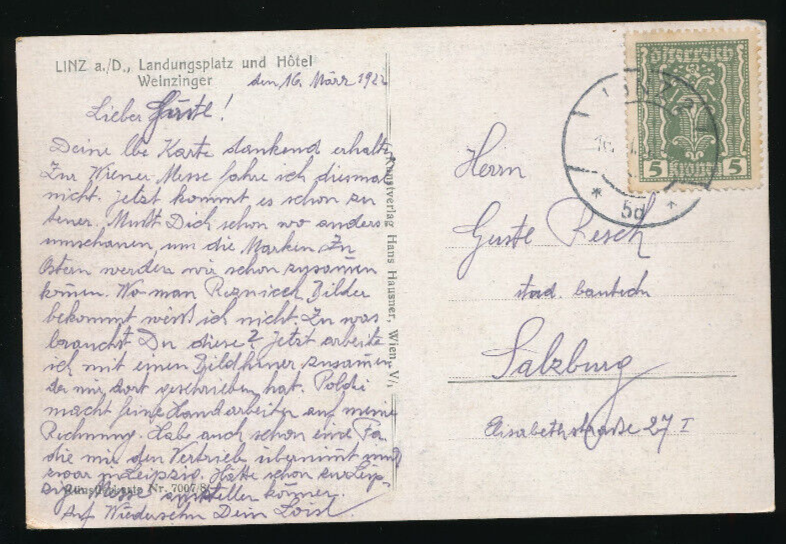 LINZ a./D., Landungsplatz und Hôtel
Weinzinger
den 16. März 1922
Lieber Guste!
Deine lbe Karte dankend erhalte
Zur Wiener Messe fahre ich diesmal
nicht. jetzt kommt es schon zu
teuer. Mußt Dich schon wo anders
umschauen, um die Marken. Zu
Ostern werden wir schon zusammen
kommen. Wo man Reznicek Bilder
bekommt weiß ich nicht. Zu was
brauchst Du diese? jetzt arbeite
ich mit einen Bildhauer zusammen
der mir dort geschrieben hat. Poldi
macht feine Handarbeiten auf meine
Rechnung. Habe auch schon eine Fa
die mir den Vertrieb übernimmt und
zwar in Leipzig. Hätte schon zur Leip-
ausstellen können.
Auf Wiedersehn Dein Loisl
Nr. 7007/8
Kunstverlag Hans Hausner, Wien, V/1
Österreich
5 Kronen 5
LINZ 2
* 5d *
Herrn
Guste Resch
stud. bautech
Salzburg
Elisabethstraße 27 I